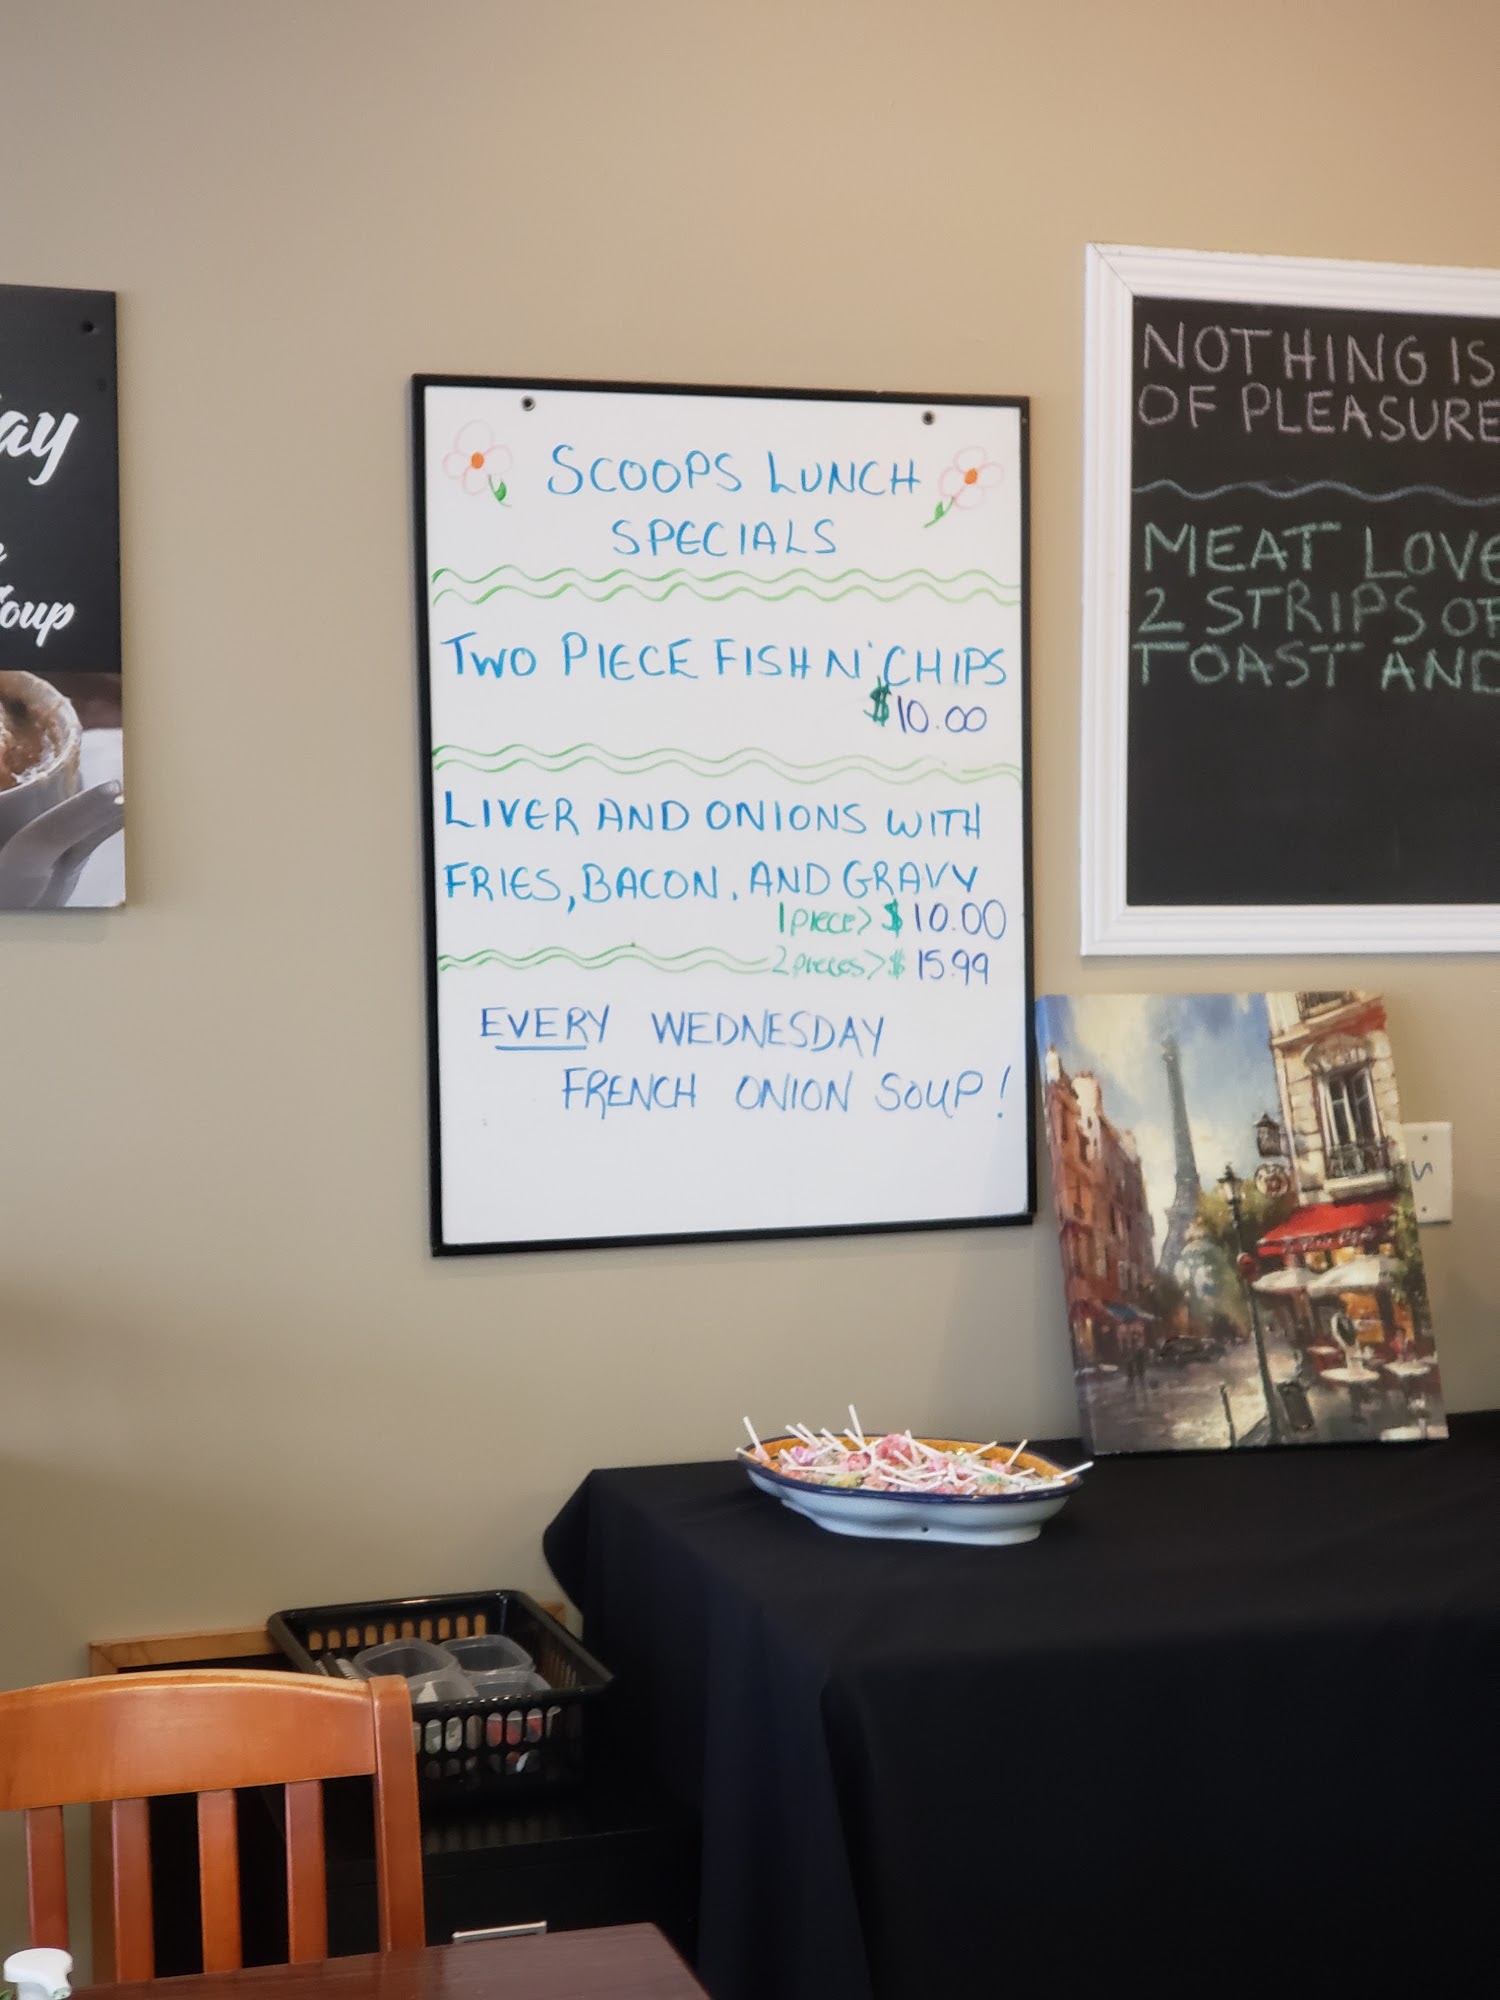 SCOOPS LUNCH
SPECIALS
TWO PIECE FISH N' CHIPS
$10.00
LIVER AND ONIONS WITH
FRIES, BACON, AND GRAVY
1 piece> $10.00
2 pieces> $15.99
EVERY WEDNESDAY
FRENCH ONION SOUP!
NOTHING IS
OF PLEASURE
MEAT LOVE
2 STRIPS OF
TOAST AND
ay
oup